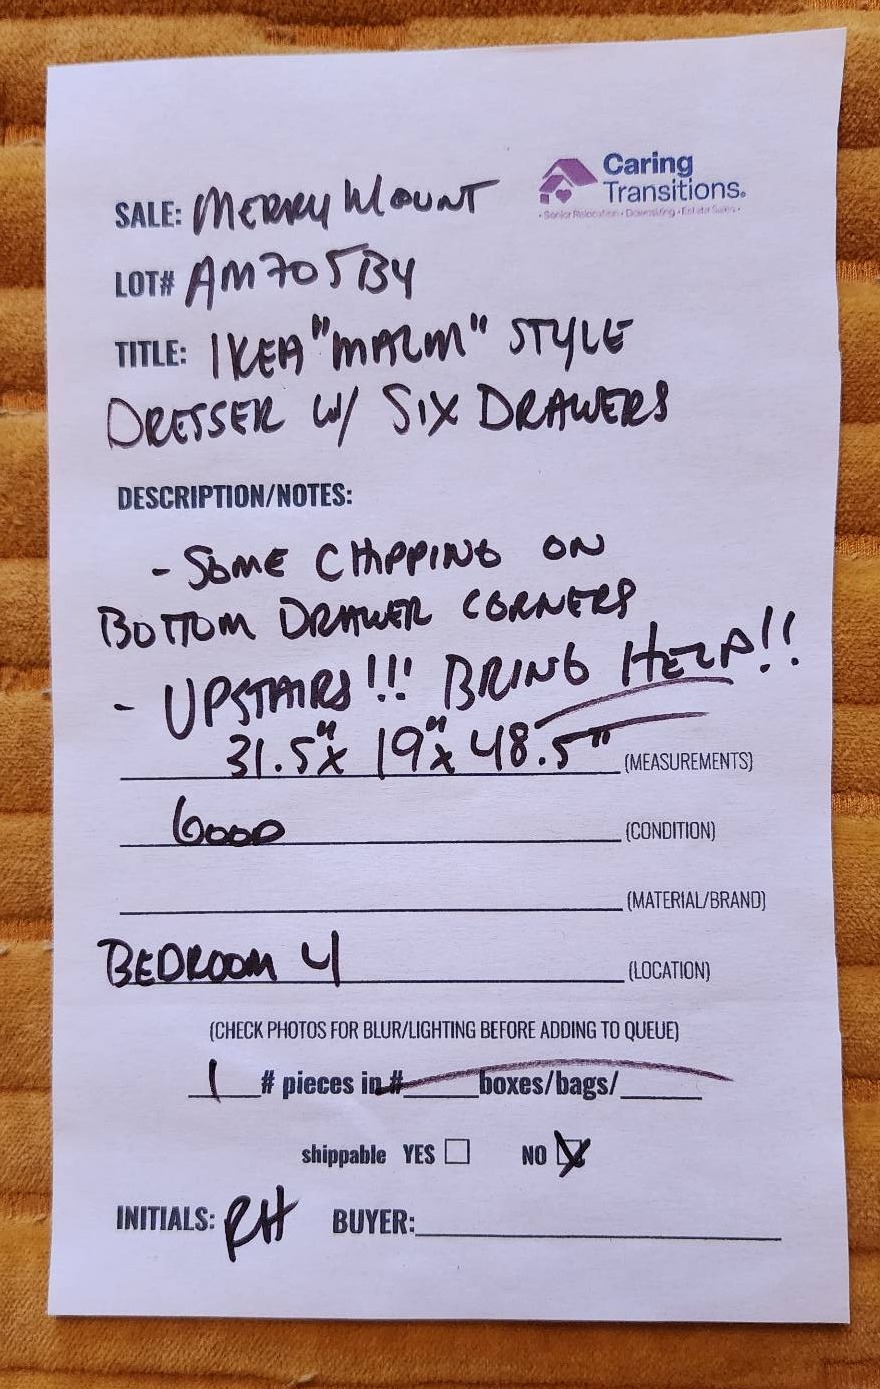 Caring
Transitions®
• Senior Relocation • Downsizing • Estate Sales •
SALE: MERRY MOUNT
LOT# AM705BY
TITLE: IKEA "MALM" STYLE
DRESSER W/ SIX DRAWERS
DESCRIPTION/NOTES:
- SOME CHIPPING ON
BOTTOM DRAWER CORNERS
- UPSTAIRS!!! BRING HELP!!
31.5" x 19" x 48.5" (MEASUREMENTS)
GOOD (CONDITION)
(MATERIAL/BRAND)
BEDROOM 4 (LOCATION)
(CHECK PHOTOS FOR BLUR/LIGHTING BEFORE ADDING TO QUEUE)
1 # pieces in # boxes/bags/
shippable YES ☐ NO ☒
INITIALS: RH BUYER: